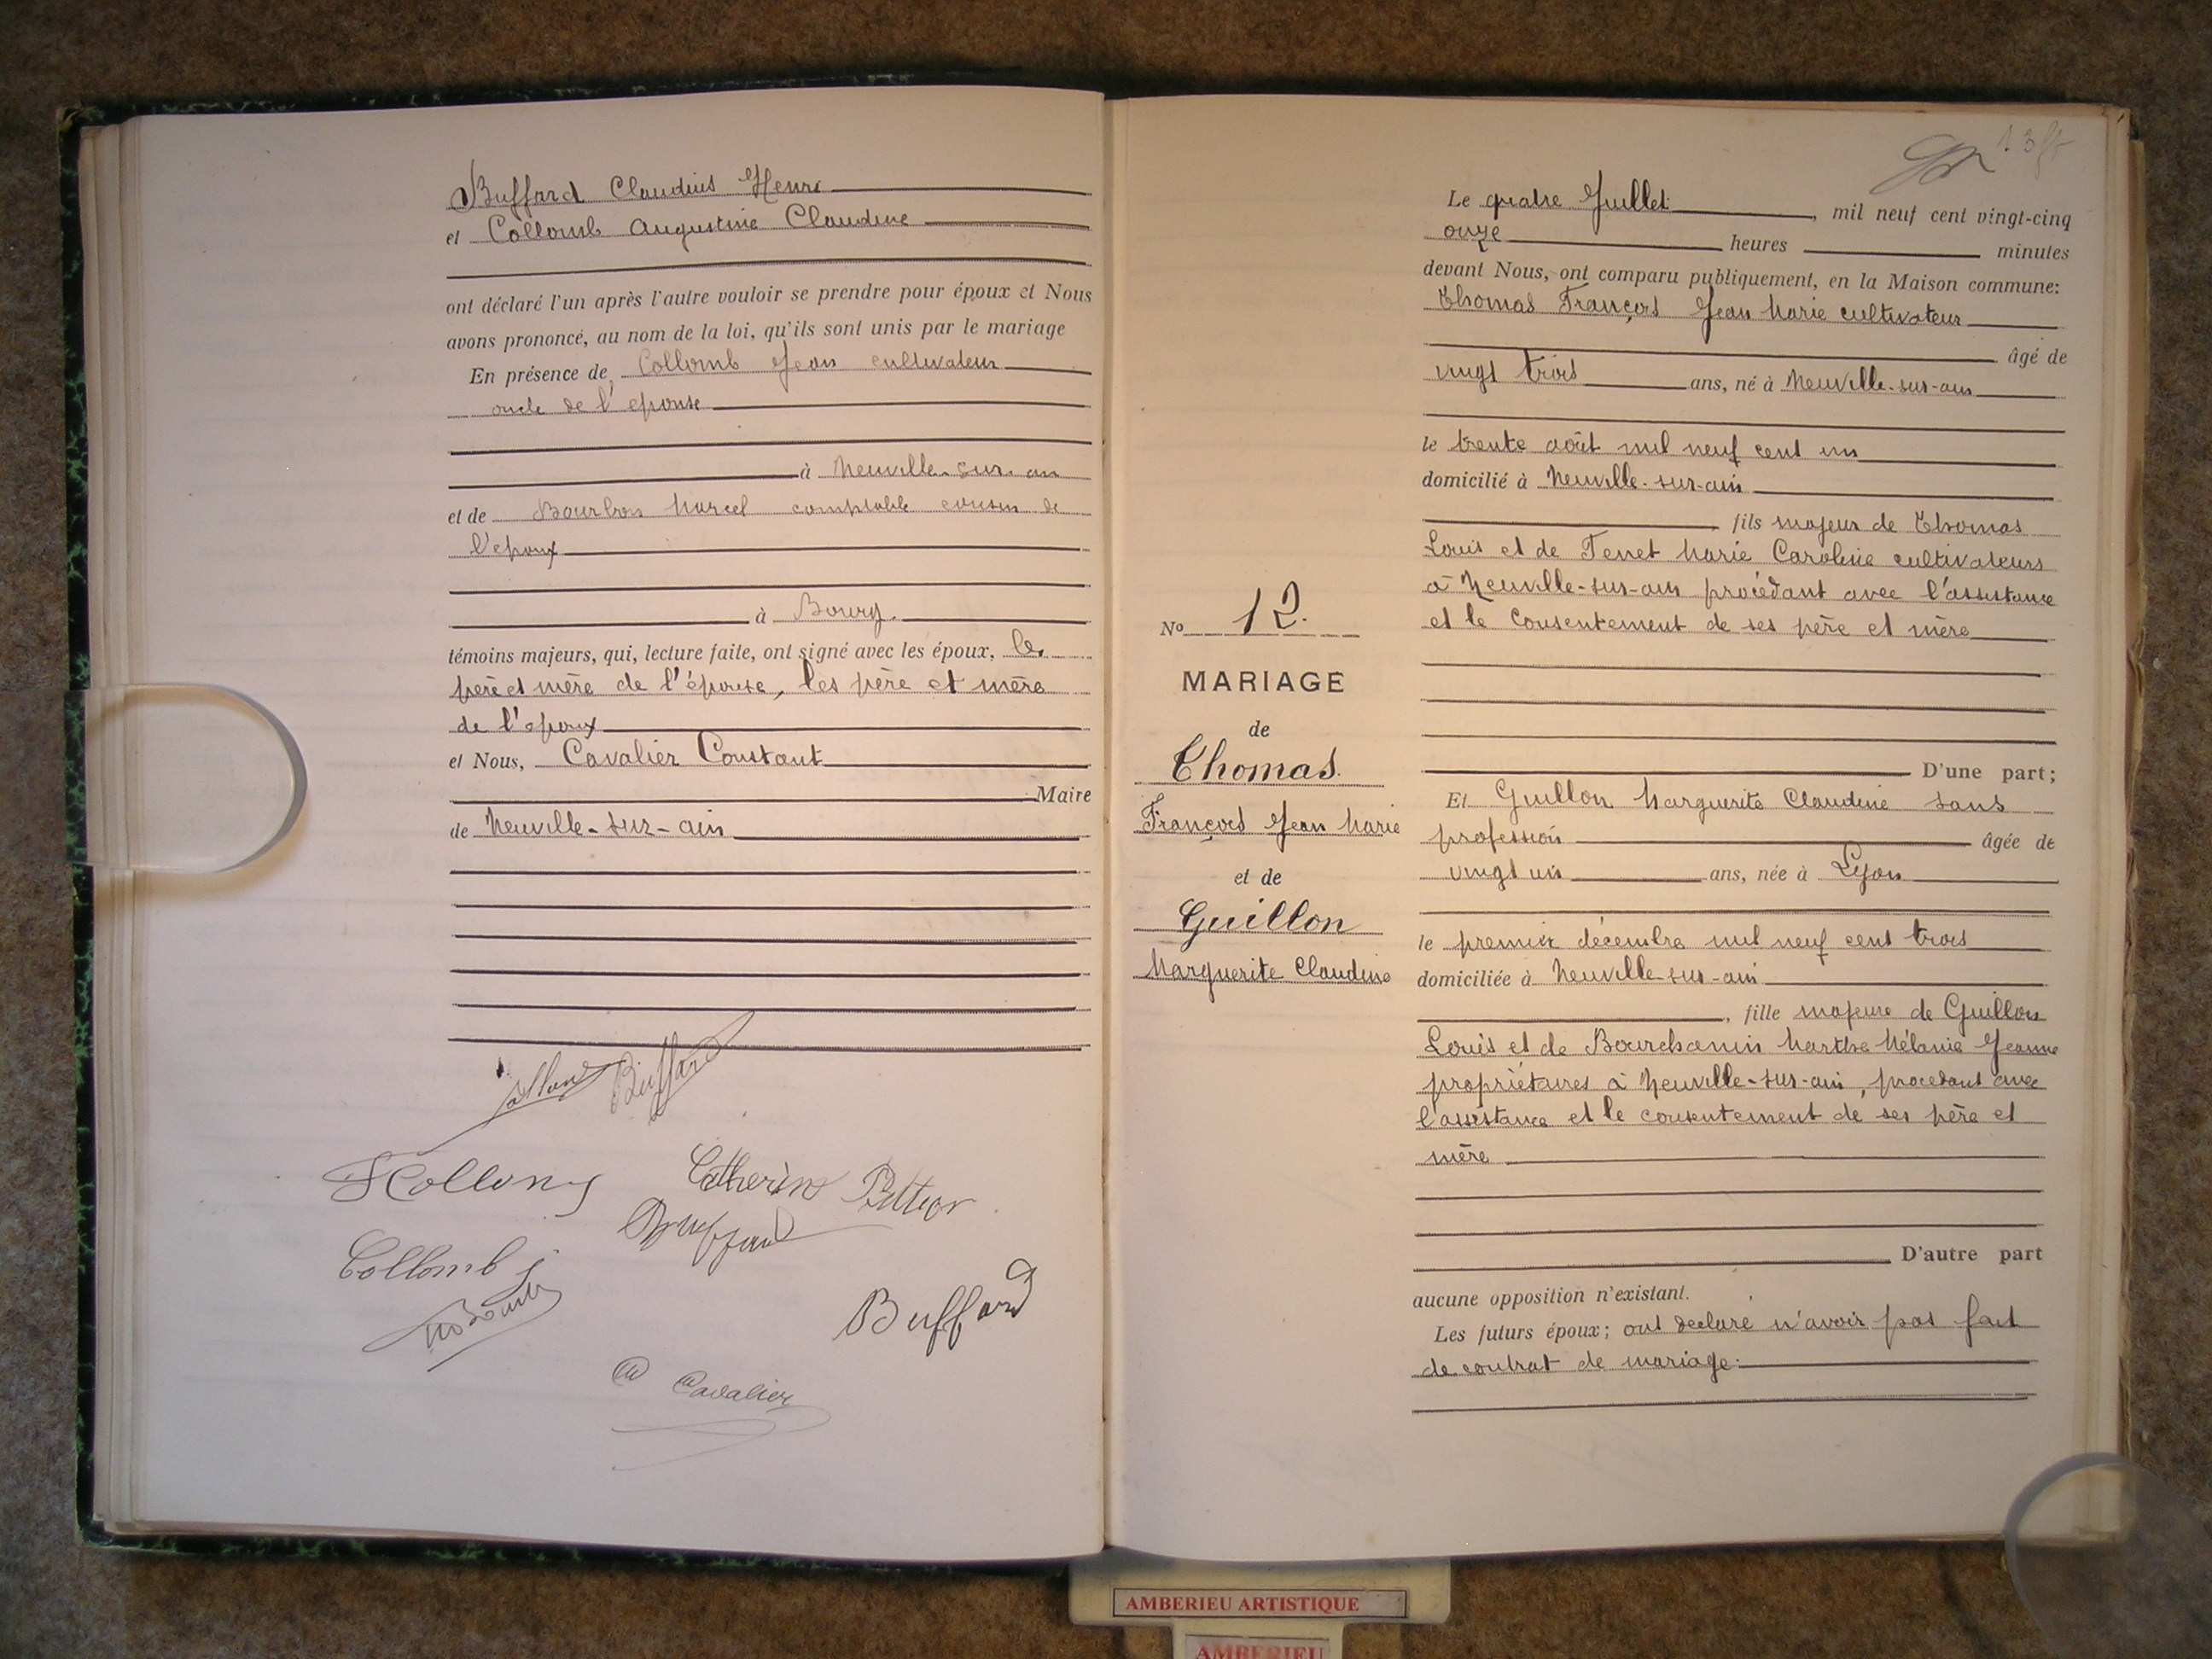 Buffard Claudius Henri
et Collomb Augustine Claudine
ont déclaré l'un après l'autre vouloir se prendre pour époux et Nous
avons prononcé, au nom de la loi, qu'ils sont unis par le mariage
En présence de Collomb Jean cultivateur
oncle de l'epouse
à Neuville-sur-ain
et de Bourbon Marcel comptable cousin de
l'epoux
à Bourg.
témoins majeurs, qui, lecture faite, ont signé avec les époux, les
père et mère de l'épouse, les père et mère
de l'epoux
et Nous, Cavalier Constant
Maire
de Neuville-sur-ain
Buffard
Collomb j
Buffard
Cavalier
13
Le quatre Juillet, mil neuf cent vingt-cinq
onze heures minutes
devant Nous, ont comparu publiquement, en la Maison commune:
Thomas François Jean Marie cultivateur
âgé de
vingt trois ans, né à Neuville-sur-ain
le trente août mil neuf cent un
domicilié à Neuville-sur-ain
fils majeur de Thomas
Louis et de Tenet Marie Caroline cultivateurs
à Neuville-sur-ain procédant avec l'assistance
et le consentement de ses père et mère
D'une part;
Et Guillon Marguerite Claudine sans
profession âgée de
vingt un ans, née à Lyon
le premier décembre mil neuf cent trois
domiciliée à Neuville-sur-ain
, fille majeure de Guillon
Louis et de Bourchanin Marthe Mélanie Jeanne
propriétaires à Neuville-sur-ain, procédant avec
l'assistance et le consentement de ses père et
mère
D'autre part
aucune opposition n'existant.
Les futurs époux; ont declaré n'avoir pas fait
de contrat de mariage.
No 12.
MARIAGE
de
Thomas
François Jean Marie
et de
Guillon
Marguerite Claudine
AMBERIEU ARTISTIQUE
AMBERIEU